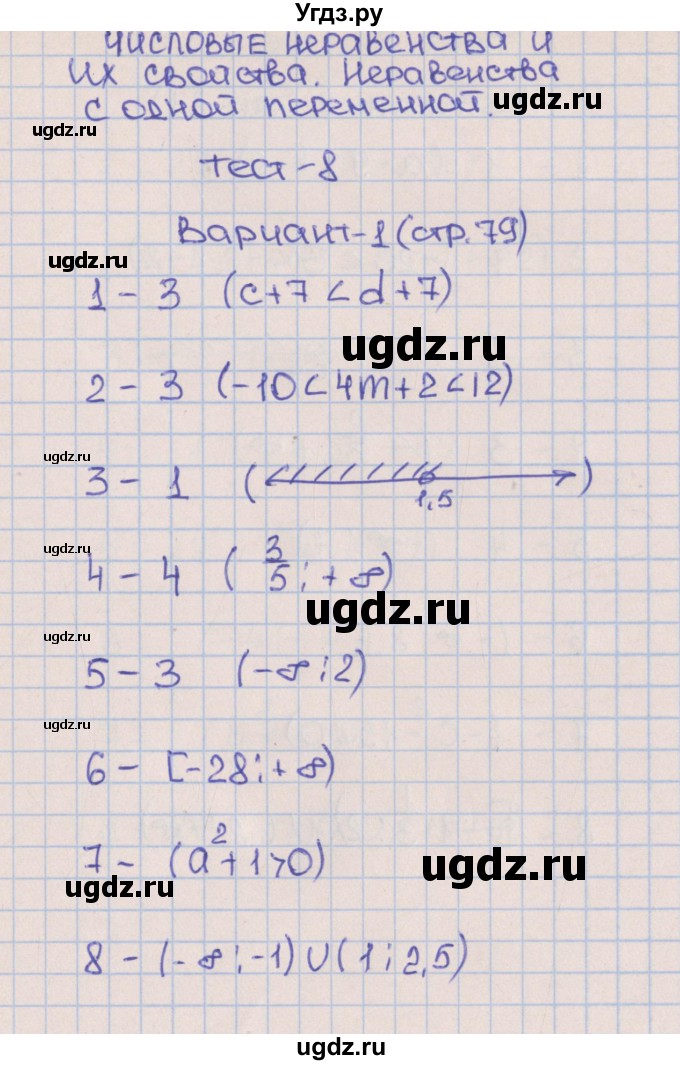 Угдз.ру
Числовые неравенства и
их свойства. Неравенства
с одной переменной.
ugdz.ru
тест-8
Вариант-1 (стр.79)
ugdz.ru
1 - 3 (c+7 < d+7)
ugdz.ru
2 - 3 (-10<4m+2<12)
ugdz.ru
3 - 1 ( 1,5 )
ugdz.ru
4 - 4 (3/5; +∞)
ugdz.ru
ugdz.ru
5 - 3 (-∞;2)
ugdz.ru
6 - [-28;+∞)
7 - (a²+1>0)
ugdz.ru
ugdz.ru
8 - (-∞;-1)∪(1;2,5)
ugdz.ru